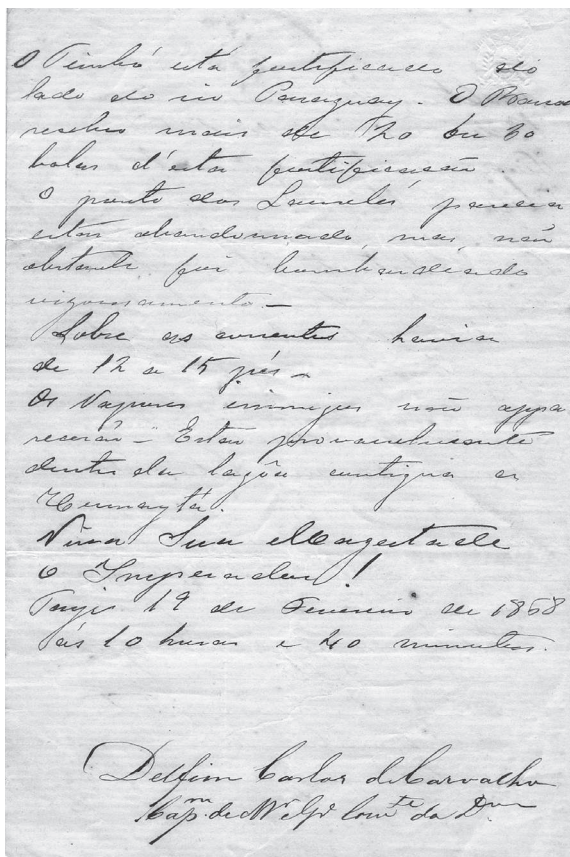 O Timbó está fortificado do
lado do rio Paraguay. O Barroso
recebeu mais de 20 ou 30
balas d'esta fortificação.
O ponto das Laureles, parecia
estar abandonnado, mas, não
obstante foi bombardeado
vigorosamente —
Sobre as correntes havia
de 12 a 15 pés —
Os Vapores inimigos não appa
recerão — Estão provavelmente
dentro da lagôa contigua a
Humaytá.
Viva Sua Magestade
O Imperador!
Tayi 19 de Fevereiro de 1868
ás 10 horas e 40 minutos.
Delfim Carlos de Carvalho
Cap.m de M. e G. Com.te da D.